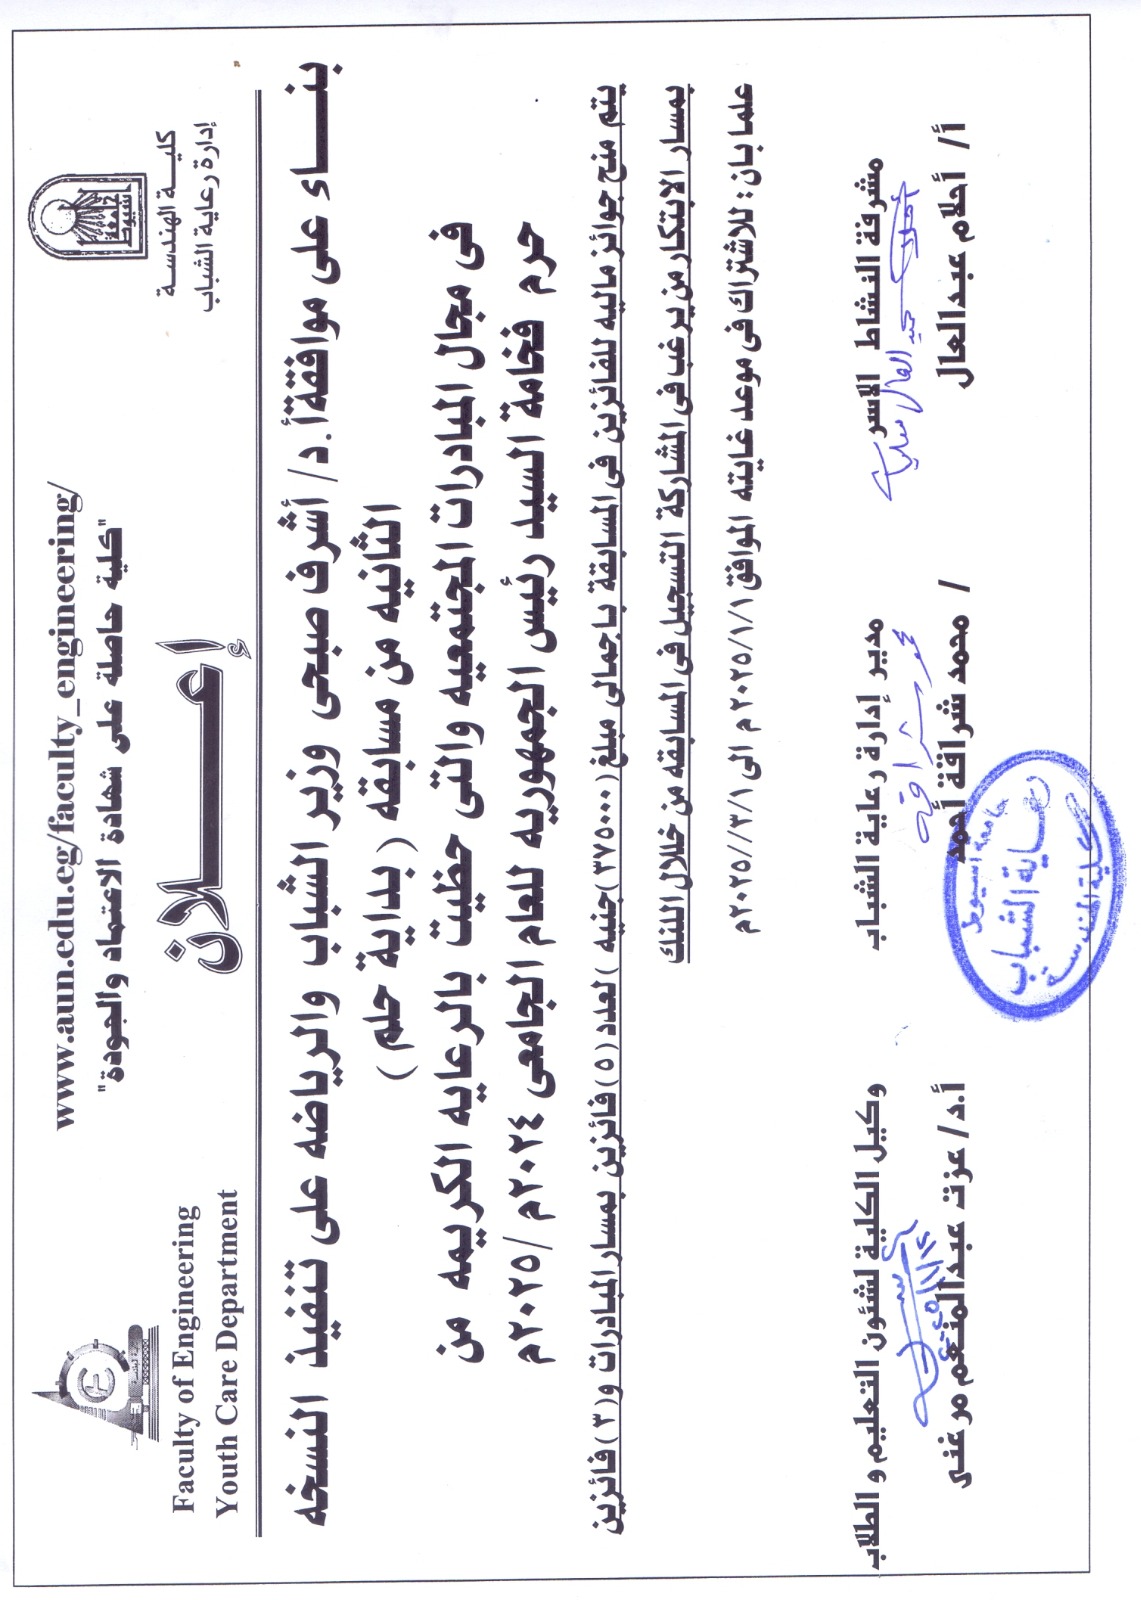 www.aun.edu.eg/faculty_engineering/
"كلية حاصلة على شهادة الاعتماد والجودة"
جامعة
اسيوط
كليـــة الهندســـة
إدارة رعاية الشباب
Faculty of Engineering
Youth Care Department
إعـــلان
بنـــــاء على موافقة أ.د/ أشرف صبحى وزير الشباب والرياضه على تنفيذ النسخه
الثانيه من مسابقه ( بداية حلم )
فى مجال المبادرات المجتمعيه والتى حظيت بالرعايه الكريمه من
حرم فخامة السيد رئيس الجمهوريه للعام الجامعى ٢٠٢٤م /٢٠٢٥م
يتم منح جوائز ماليه للفائزين فى المسابقة باجمالى مبلغ ( ٣٧٥٠٠٠ )جنيه )لعدد (٥) فائزين بمسار المبادرات و(٣) فائزين
بمسار الابتكار من يرغب فى المشاركة التسجيل فى المسابقه من خلال اللنك
علما بان : للاشتراك فى موعد غايته الموافق ٢٠٢٥/١/١م الى ٢٠٢٥//٣/١م
مشرفة النشاط الاسر
أحلام عبد العال
أ/ أحلام عبدالعال
مدير إدارة رعاية الشباب
محمد شراقة
/ محمد شراقة أحمد
جامعة أسيوط
رعاية الشباب
كلية الهندسة
وكيل الكلية لشئون التعليم و الطلاب
أ.د/ عزت عبدالمنعم مرغنى